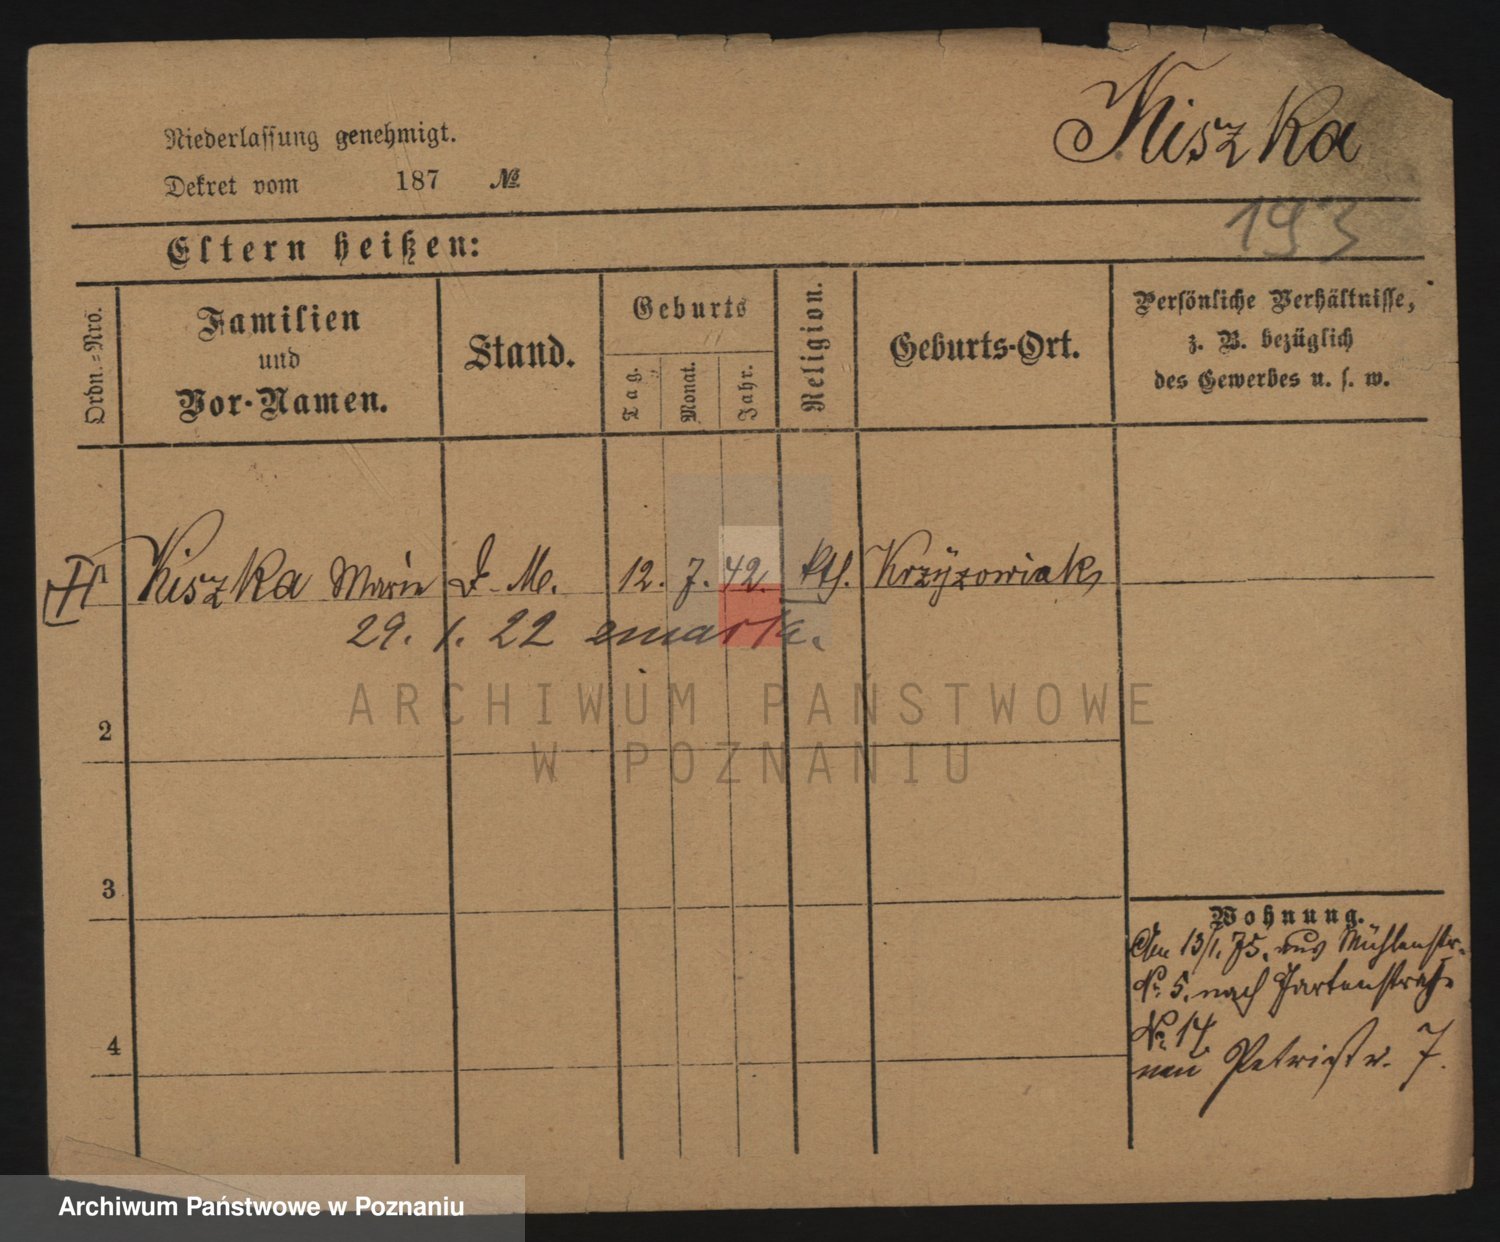 Kiszka
Niederlassung genehmigt.
Dekret vom 187 №
193
Eltern heißen:
Ordn.-Nro.
Familien
und
Vor-Namen.
Stand.
Geburts
Tag.
Monat.
Jahr.
Religion.
Geburts-Ort.
Persönliche Verhältnisse,
z. B. bezüglich
des Gewerbes u. s. w.
1 Kiszka Marie D. M. 12. 7. 42. kth. Krzyżowiak
29. 1. 22 zmarła.
ARCHIWUM PAŃSTWOWE
W POZNANIU
2
3
4
Wohnung.
Am 13/1. 75. aus Mühlenstr.
No. 5. nach Gartenstraße
No. 14.
neu Petristr. 7.
Archiwum Państwowe w Poznaniu